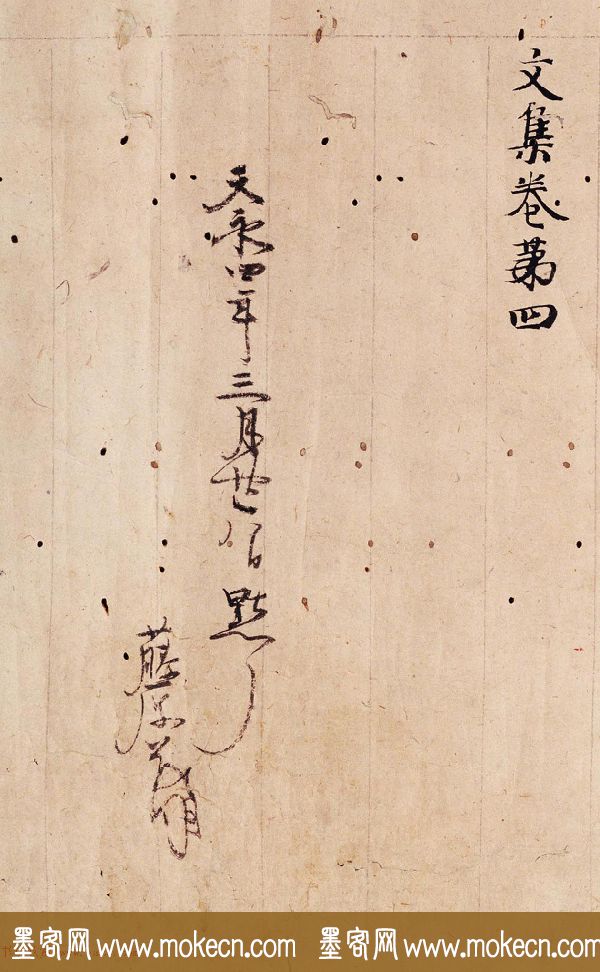 文集卷第四
天永四年三月廿八日點了
藤原茂明
墨客网 www.mokecn.com 墨客网 www.mokecn.com